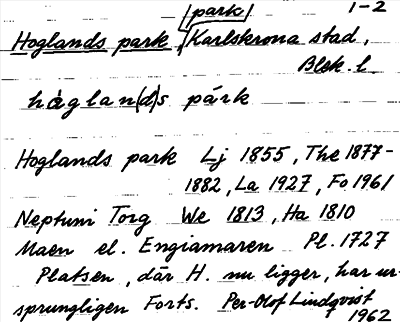 |park| 1-2
Hoglands park, Karlskrona stad,
Blek. l.
hòglan(d)s párk
Hoglands park Lj 1855, The 1877-
1882, La 1927, Fo 1961
Neptuni Torg We 1813, Ha 1810
Maen el. Engiamaren Pl. 1727
Platsen, där H. nu ligger, har ur-
sprungligen Forts. Per-Olof Lindqvist
1962